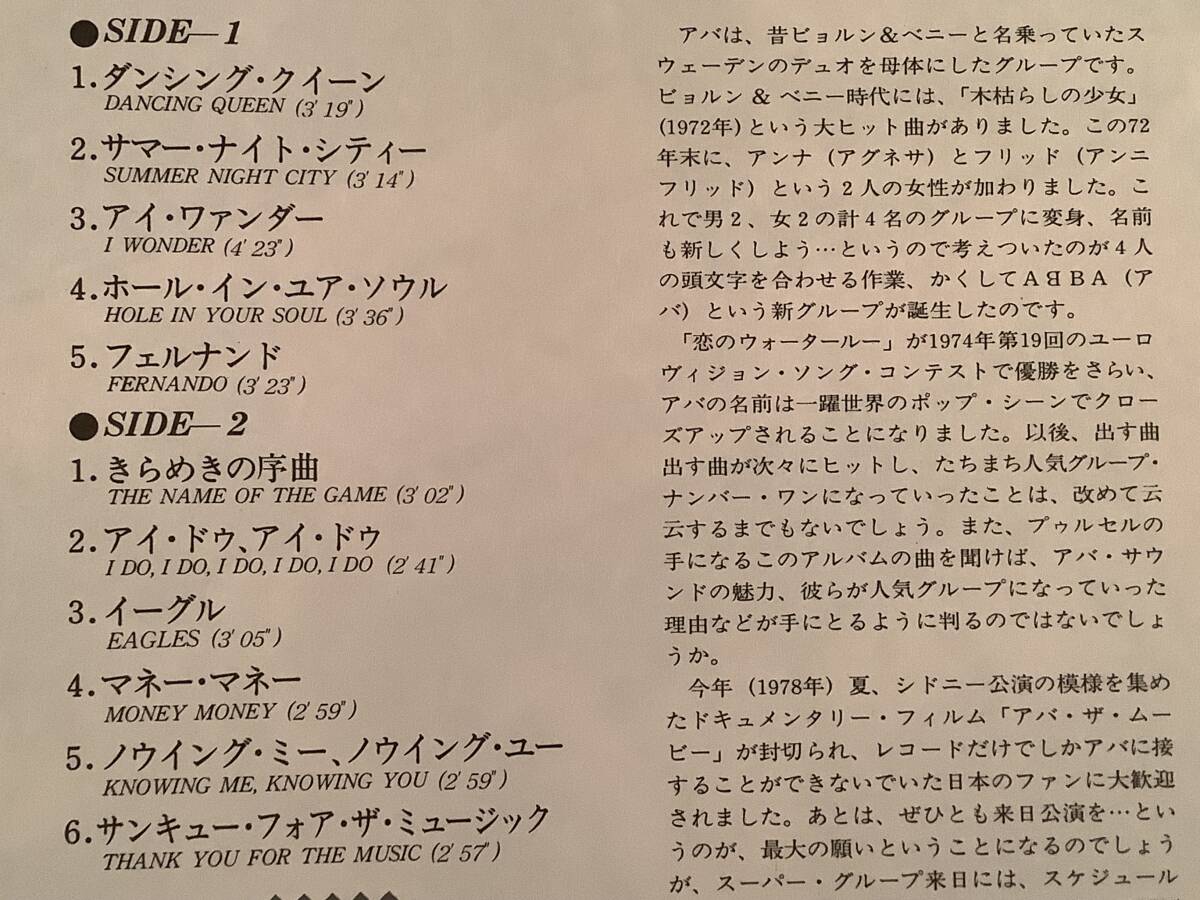 ●SIDE—1
1.ダンシング・クイーン
DANCING QUEEN (3′19″)
2.サマー・ナイト・シティー
SUMMER NIGHT CITY (3′14″)
3.アイ・ワァンダー
I WONDER (4′23″)
4.ホール・イン・ユア・ソウル
HOLE IN YOUR SOUL (3′36″)
5.フェルナンド
FERNANDO (3′23″)
●SIDE—2
1.きらめきの序曲
THE NAME OF THE GAME (3′02″)
2.アイ・ドゥ、アイ・ドゥ
I DO, I DO, I DO, I DO, I DO (2′41″)
3.イーグル
EAGLES (3′05″)
4.マネー・マネー
MONEY MONEY (2′59″)
5.ノウイング・ミー、ノウイング・ユー
KNOWING ME, KNOWING YOU (2′59″)
6.サンキュー・フォア・ザ・ミュージック
THANK YOU FOR THE MUSIC (2′57″)
アバは、昔ビョルン&ベニーと名乗っていたス
ウェーデンのデュオを母体にしたグループです。
ビョルン & ベニー時代には、「木枯らしの少女」
(1972年)という大ヒット曲がありました。この72
年末に、アンナ（アグネサ）とフリッド（アンニ
フリッド）という2人の女性が加わりました。こ
れで男2、女2の計4名のグループに変身、名前
も新しくしよう…というので考えついたのが4人
の頭文字を合わせる作業、かくしてAᗺBA（ア
バ）という新グループが誕生したのです。
「恋のウォータールー」が1974年第19回のユーロ
ヴィジョン・ソング・コンテストで優勝をさらい、
アバの名前は一躍世界のポップ・シーンでクロー
ズアップされることになりました。以後、出す曲
出す曲が次々にヒットし、たちまち人気グループ・
ナンバー・ワンになっていったことは、改めて云
云するまでもないでしょう。また、プゥルセルの
手になるこのアルバムの曲を聞けば、アバ・サウ
ンドの魅力、彼らが人気グループになっていった
理由などが手にとるように判るのではないでしょ
うか。
今年（1978年）夏、シドニー公演の模様を集め
たドキュメンタリー・フィルム「アバ・ザ・ムー
ビー」が封切られ、レコードだけでしかアバに接
することができないでいた日本のファンに大歓迎
されました。あとは、ぜひとも来日公演を…とい
うのが、最大の願いということになるのでしょう
が、スーパー・グループ来日には、スケジュール